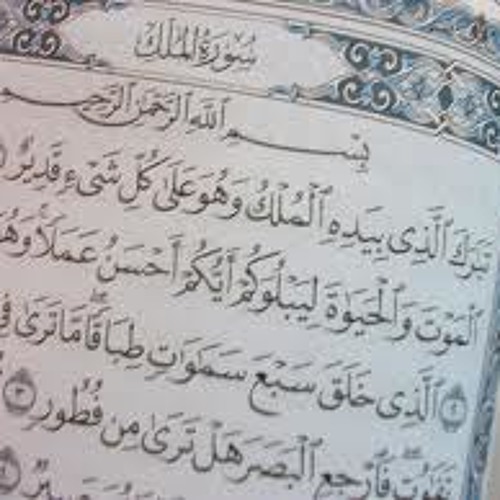 سُورَةُ المُلْكِ
بِسْمِ ٱللَّهِ ٱلرَّحْمَٰنِ ٱلرَّحِيمِ
تَبَٰرَكَ ٱلَّذِى بِيَدِهِ ٱلْمُلْكُ وَهُوَ عَلَىٰ كُلِّ شَىْءٍ قَدِيرٌ
ٱلْمَوْتَ وَٱلْحَيَوٰةَ لِيَبْلُوَكُمْ أَيُّكُمْ أَحْسَنُ عَمَلًا وَهُوَ
٢ ٱلَّذِى خَلَقَ سَبْعَ سَمَٰوَٰتٍ طِبَاقًا مَّا تَرَىٰ فِى
تَفَٰوُتٍ فَٱرْجِعِ ٱلْبَصَرَ هَلْ تَرَىٰ مِن فُطُورٍ ٣